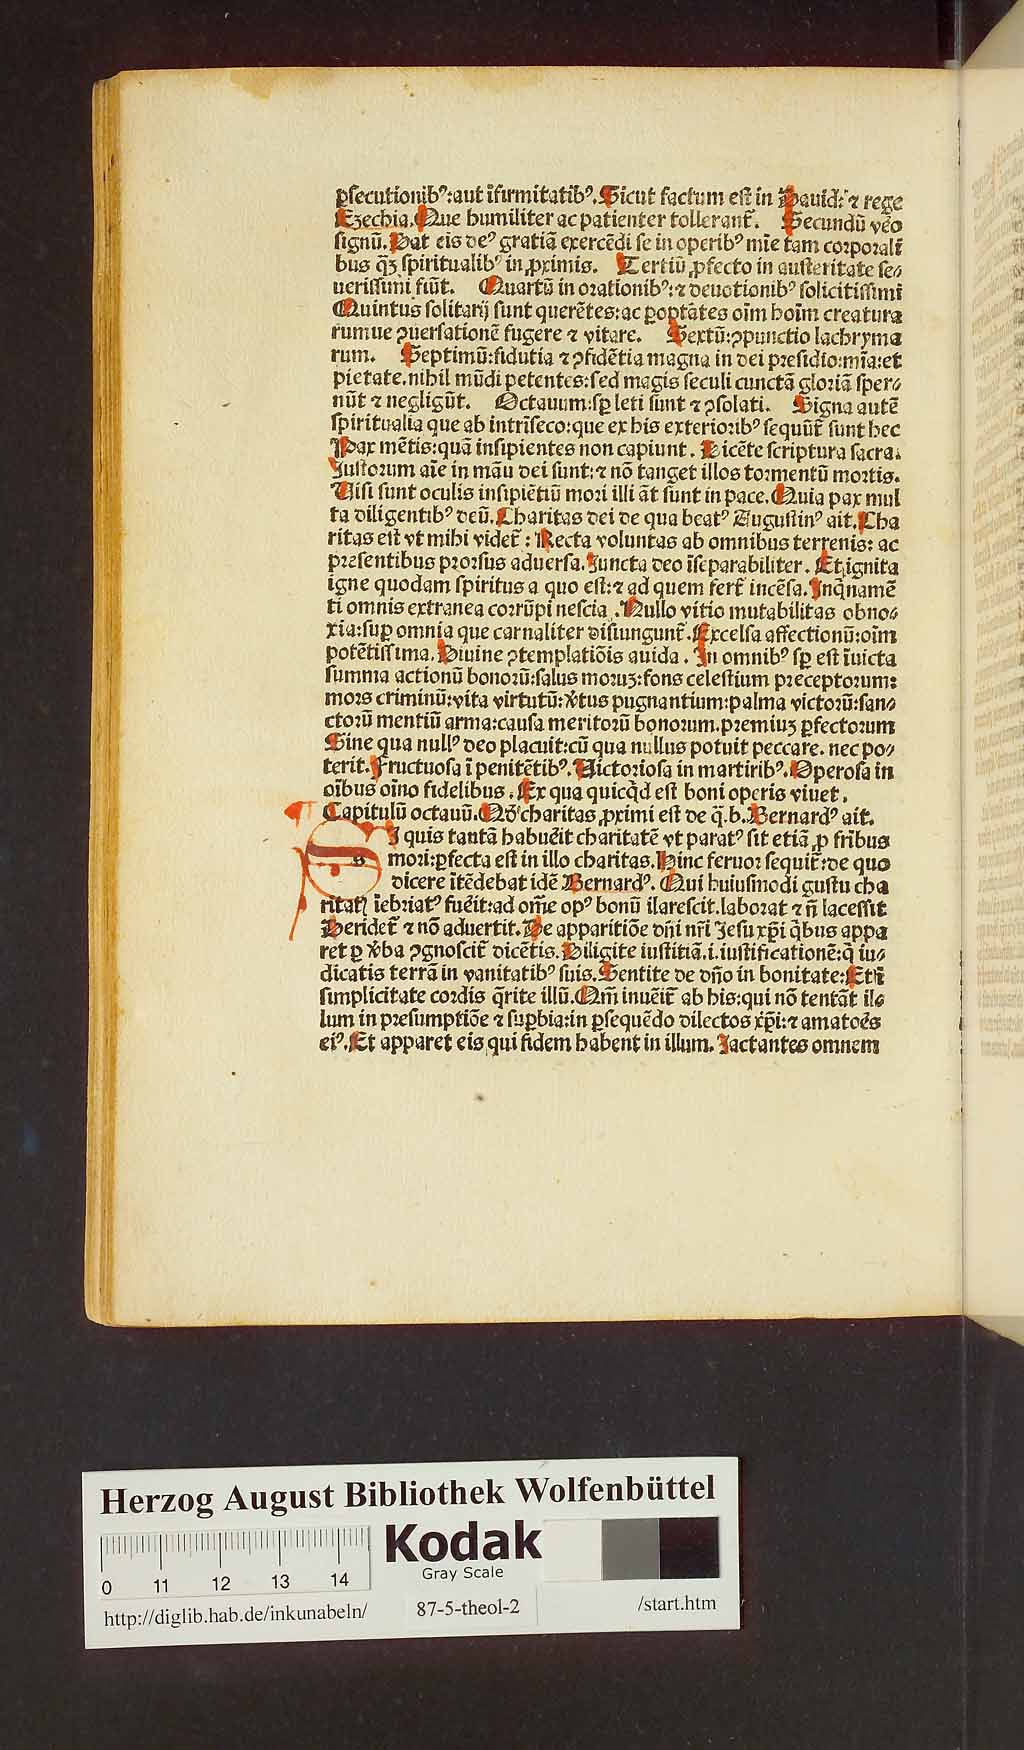 ꝑſecutionibꝰ:aut īfirmitatibꝰ. Sicut factum eſt in Dauid: ⁊ rege
Ezechia. Que humiliter ac patienter tollerant̄. Secundū ve͛o
ſignū. Dat eis deꝰ gratiā exercēdi ſe in operibꝰ mīe tam corporali
bus qʒ̄ ſpiritualibꝰ in ꝓximis. Tertiū ꝓfecto in auſteritate ſe⸗
ueriſſimi fiūt. Quartū in orationibꝰ:⁊ deuotionibꝰ ſolicitiſſimi
Quintus ſolitarij ſunt querētes:ac ꝑoptātes oīm hoīm creatura
rumue ꝯuerſationē fugere ⁊ vitare. Sextū:ꝯpunctio lachryma
rum. Septimū:fidutia ⁊ ꝯfidētia magna in dei preſidio:mīa:et
pietate.nihil mūdi petentes:ſed magis ſeculi cunctā gloriā ſper⸗
nūt ⁊ negligūt. Octauum:ſꝑ leti ſunt ⁊ ꝯſolati. Signa autē
ſpiritualia que ab intrīſeco:que ex his exterioribꝰ ſequūt̄ ſunt hec
Pax mētis:quā inſipientes non capiunt. Dicēte ſcriptura ſacra.
Iuſtorum aīe in māu dei ſunt:⁊ nō tanget illos tormentū mortis.
Uiſi ſunt oculis inſipiētiū mori illi āt ſunt in pace. Quia pax mul
ta diligentibꝰ deū. Charitas dei de qua beatꝰ Auguſtinꝰ ait. Cha
ritas eſt vt mihi videt̄: Recta voluntas ab omnibus terrenis: ac
preſentibus prorſus aduerſa. Iuncta deo īſeparabiliter. Et ignita
igne quodam ſpiritus a quo eſt:⁊ ad quem fert̄ incēſa. Inq̄namē
ti omnis extranea corrūpi neſcia. Nullo vitio mutabilitas obno⸗
xia:ſuꝑ omnia que carnaliter diſiungunt̄. Excelſa affectionū:oīm
potētiſſima. Diuine ꝯtemplatiōis auida. In omnibꝰ ſꝑ eſt īuicta
ſumma actionū bonorū:ſalus moruʒ:fons celeſtium preceptorum:
mors criminū:vita virtutū:v͛tus pugnantium:palma victorū:ſan⸗
ctorū mentiū arma:cauſa meritorū bonorum.premiuʒ ꝑfectorum
Sine qua nullꝰ deo placuit:cū qua nullus potuit peccare. nec po⸗
terit. Fructuoſa ī penitētibꝰ. Victorioſa in martiribꝰ. Operoſa in
oībus oīno fidelibus. Ex qua quicq̄d eſt boni operis viuet.
Capitulū octauū. Qd̄ charitas ꝓximi eſt de q̄.b. Bernardꝰ ait.
SI quis tantā habue͛it charitatē vt paratꝰ ſit etiā ꝓ fr̄ibus
mori:ꝑfecta eſt in illo charitas. Hinc feruor ſequit̄:de quo
dicere ītēdebat idē Bernardꝰ. Qui huiuſmodi guſtu cha
ritatꝭ īebriatꝰ fue͛it:ad om̄e opꝰ bonū ilareſcit.laborat ⁊ n̄ laceſſit
Deridet̄ ⁊ nō aduertit. De apparitiōe dn̄i nr̄i Jeſu xp̄i q̄bus appa
ret ꝑ v͛ba ꝯgnoſcit̄ dicētis. Diligite iuſtitiā.i.iuſtificationē:q̄ iu⸗
dicatis terrā in vanitatibꝰ ſuis. Sentite de dn̄o in bonitate: Et ī
ſimplicitate cordis q̄rite illū. Qm̄ inue͛it̄ ab his:qui nō tentāt il⸗
lum in preſumptiōe ⁊ ſuꝑbia:in ꝑſequēdo dilectos xp̄i:⁊ amato͛es
eiꝰ. Et apparet eis qui fidem habent in illum. Jactantes omnem
Herzog August Bibliothek Wolfenbüttel
Kodak
Gray Scale
0 11 12 13 14
http://diglib.hab.de/inkunabeln/ 87-5-theol-2 /start.htm